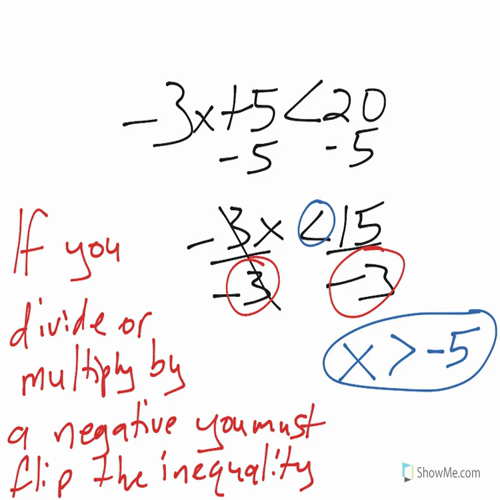 -3x+5<20
-5 -5
-3x < 15
-3 -3
x > -5
If you
divide or
multiply by
a negative you must
flip the inequality
ShowMe.com